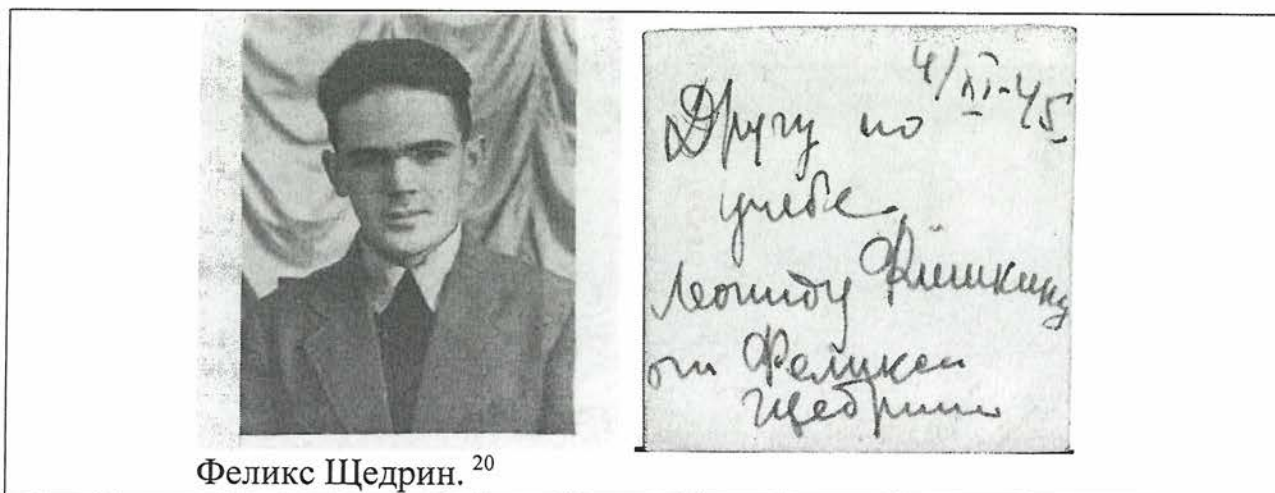 4/XI-45
Другу по
учебе
Леониду Флешкину
от Феликса
Щедрина
Феликс Щедрин. 20